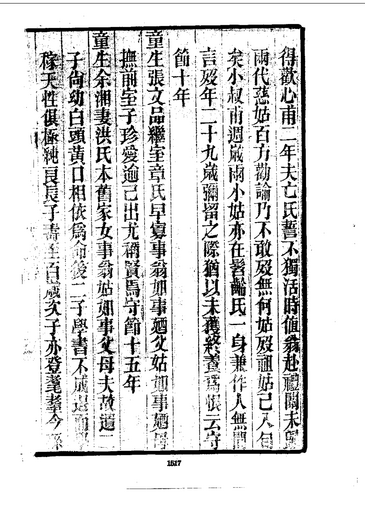 得歡心甫二年夫亡氏誓不獨活時值翁赴禮闈未歸
兩代慈姑百方勸諭乃不敢歿無何姑歿祖姑已八旬
矣小叔甫週歲兩小姑亦在髫齡氏一身兼作人無間
言歿年二十九歲彌留之際猶以未獲終養爲恨云守
節十年
童生張文品繼室章氏早寡事翁如事廼父姑如事廼母
撫前室子珍愛逾己出尤稱賢焉守節十五年
童生余湘妻洪氏本舊家女事翁姑如事父母夫故遺二
子尙幼白頭黃口相依爲命後二子學書不成退而
稼天性俱極純良長子壽至百歲次子亦登耄耋今孫
1517